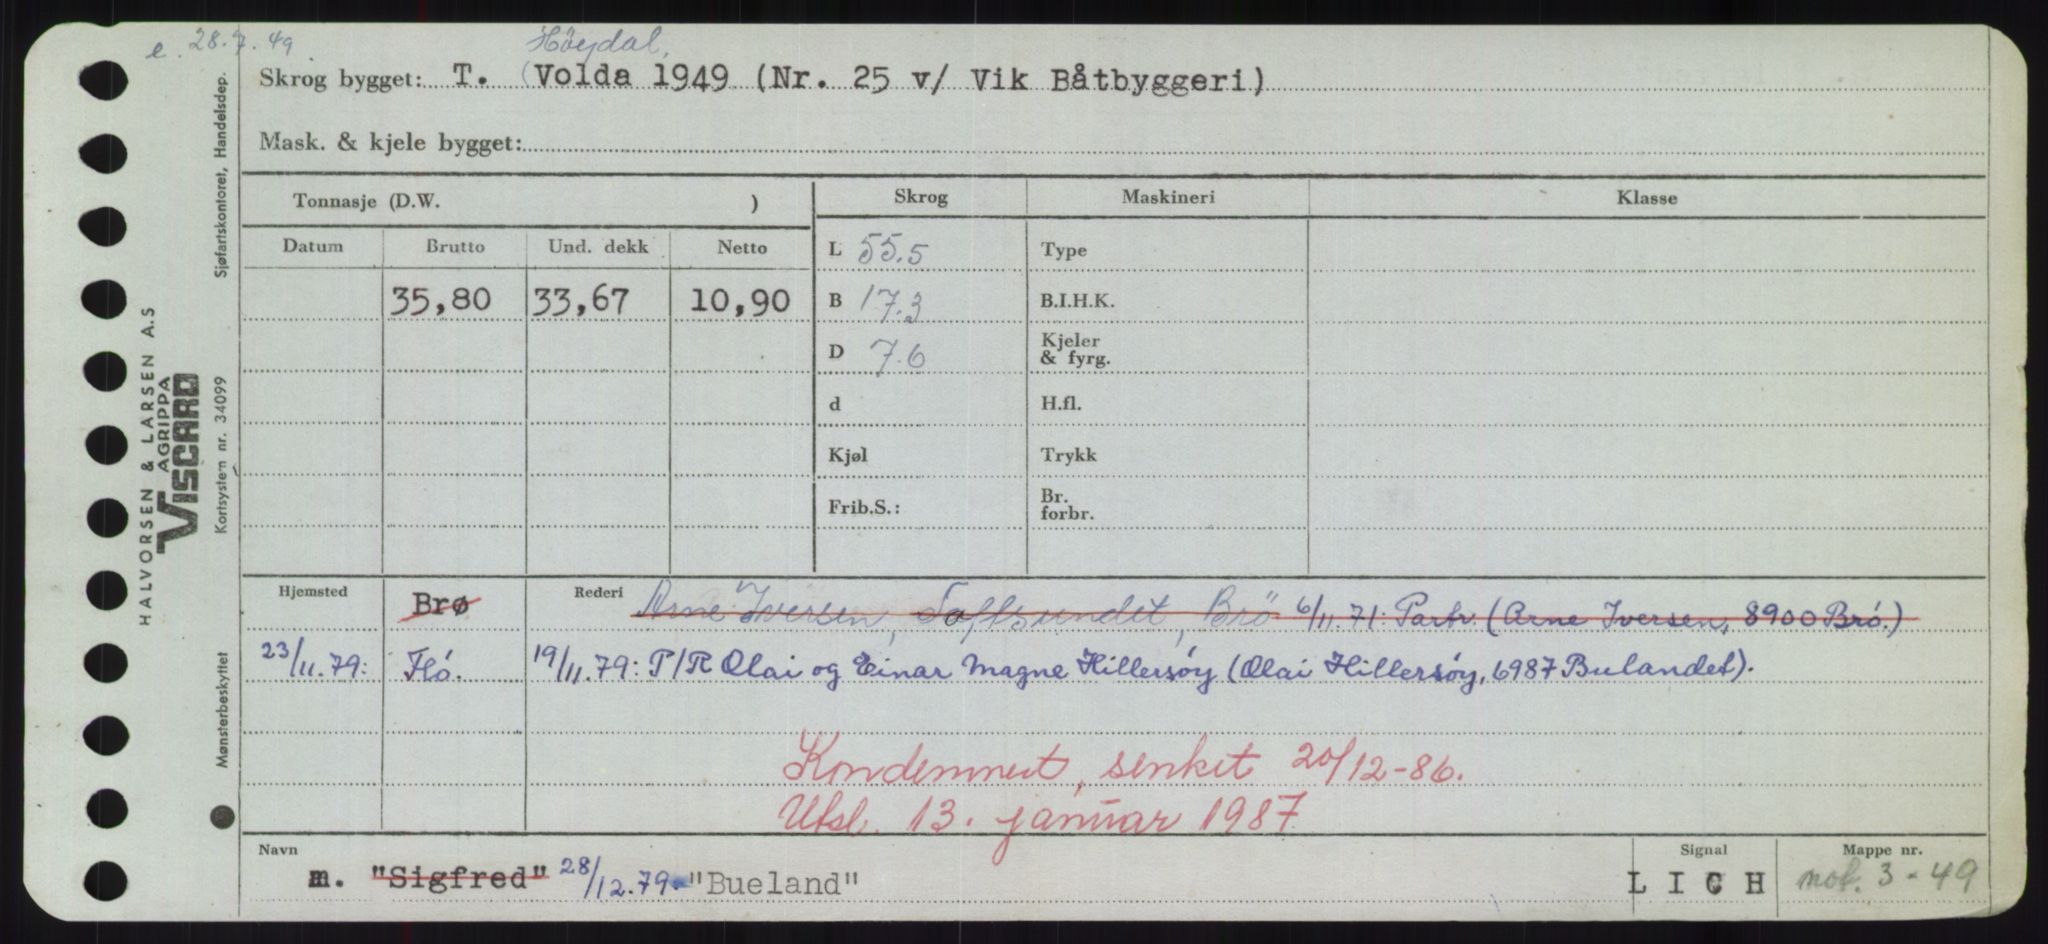 e. 28.7.49 Höydal,
Skrog bygget: T. (Volda 1949 (Nr. 25 v/ Vik Båtbyggeri)
Mask. & kjele bygget:
Tonnasje (D.W. ) Skrog Maskineri Klasse
Datum Brutto Und. dekk Netto L 55.5 Type
35,80 33,67 10,90 B 17.3 B.I.H.K.
D 7.6 Kjeler & fyrg.
d H.fl.
Kjøl Trykk
Frib.S.: Br. forbr.
Hjemsted Brø Rederi Arne Iversen, Toftsundet, Brö 6/11.71: Partr. (Arne Iversen, 8900 Brö.)
23/11.79: Flö. 19/11.79: P/R Olai og Einar Magne Hillersöy (Olai Hillersöy, 6987 Bulandet).
Kondemnert, senket 20/12-86.
Utsl. 13. januar 1987
Navn Signal Mappe nr.
m. "Sigfred" 28/12.79. "Bueland" L I C H not. 3-49
HALVORSEN & LARSEN A.S
AGRIPPA
VISCARD
Sjøfartskontoret, Handelsdep.
Kortsystem nr. 34099
Mønsterbeskyttet